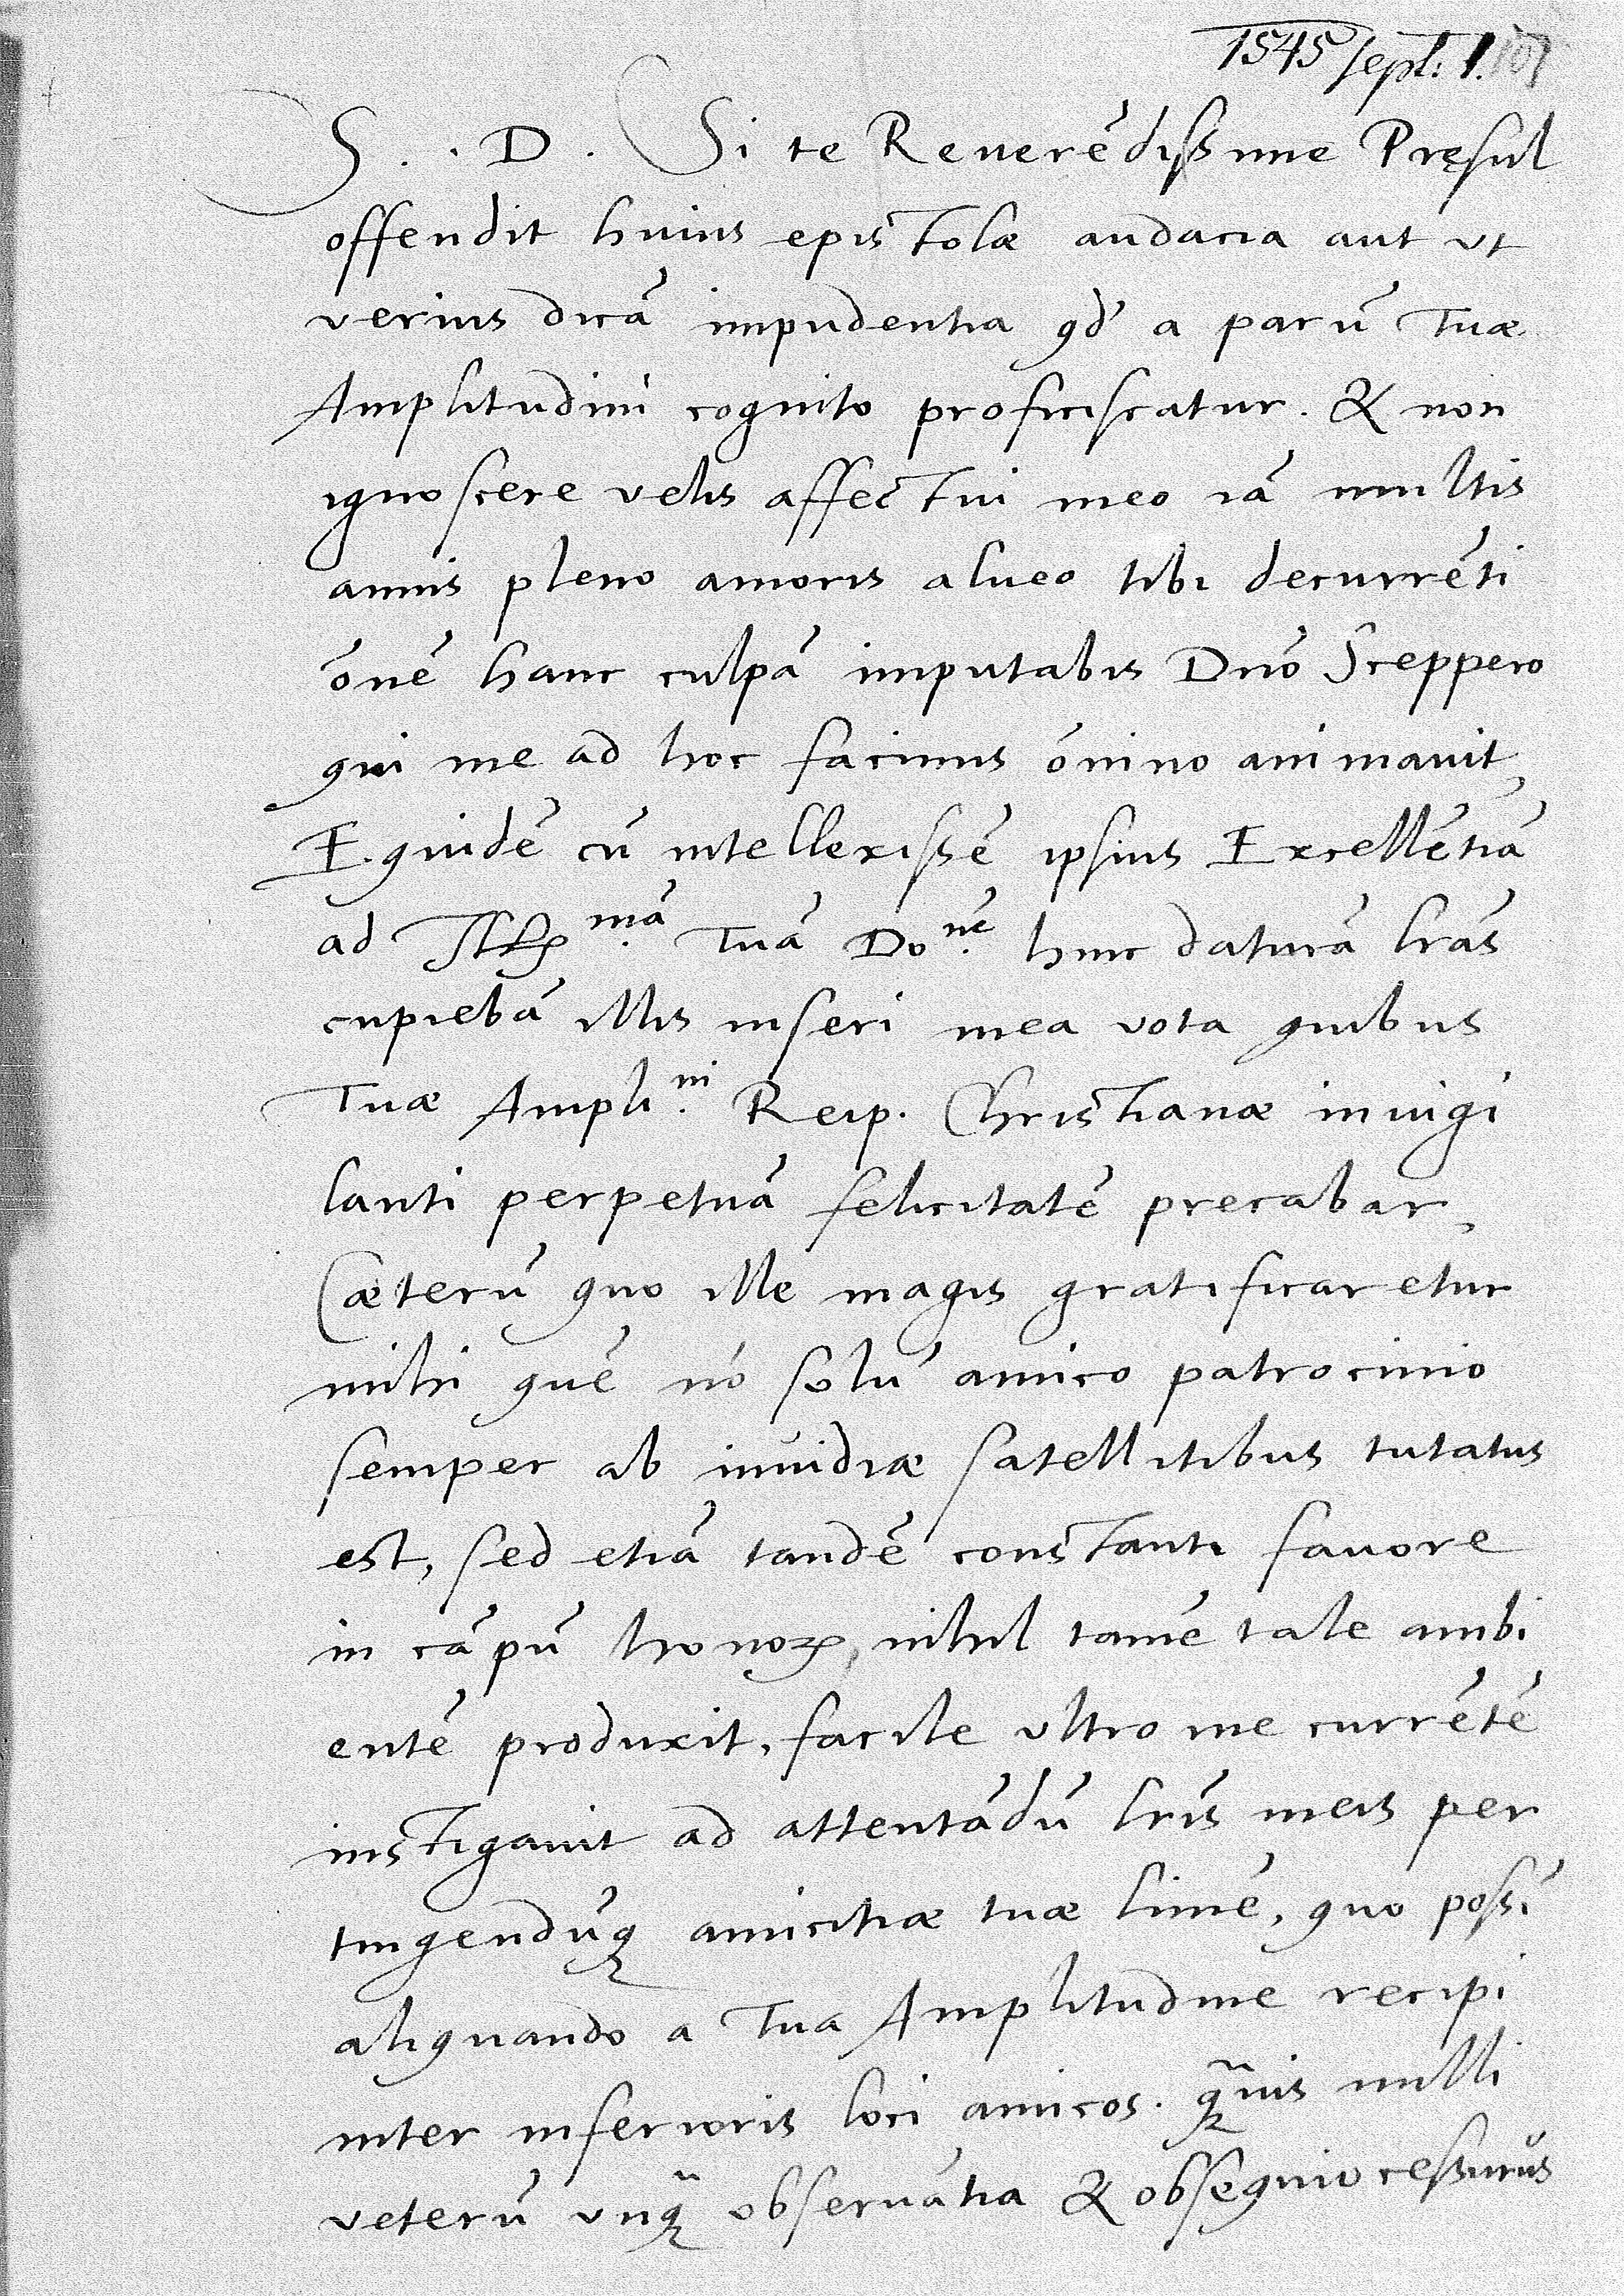 1545 sept: 1. 101
S. . D. Si te Reuerēdissime Pręsul
offendit huius epistolæ audacia aut vt
verius dicā impudentia qd' a parū tuæ
Amplitudini cognito proficiscatur. & non
ignoscere velis affectui meo iā multis
annis pleno amoris alueo tibi decurrēti
ōnē hanc culpā imputabis Dn̄o Sceppero
qui me ad hoc facinus ōnino animauit,
Equidē cū intellexissē ipsius Excellētiā
ad tuā Do.nē hinc daturā lr̄as
cupiebā illis inseri mea vota quibus
Tuæ Ampli.ni Reip. Christianæ inuigi
lanti perpetuā felicitatē precabar,
Cæterū quo ille magis gratificaretur
mihi quē nō solū amico patrocinio
semper ab inuidiæ satellitibus tutatus
est, sed etiā tandē constanti fauore
in cāpū honoꝝ, nihil tamē tale ambi
entē produxit, facile vltro me currētē
instigauit ad attentādū lr̄is meis per
tingendūq amicitiæ tuæ limē, quo possī
aliquando a Tua Amplitudine recipi
inter inferioris loci amicos. q̄uis nulli
veterū vnq̄ obseruātia & obsequio cessurus